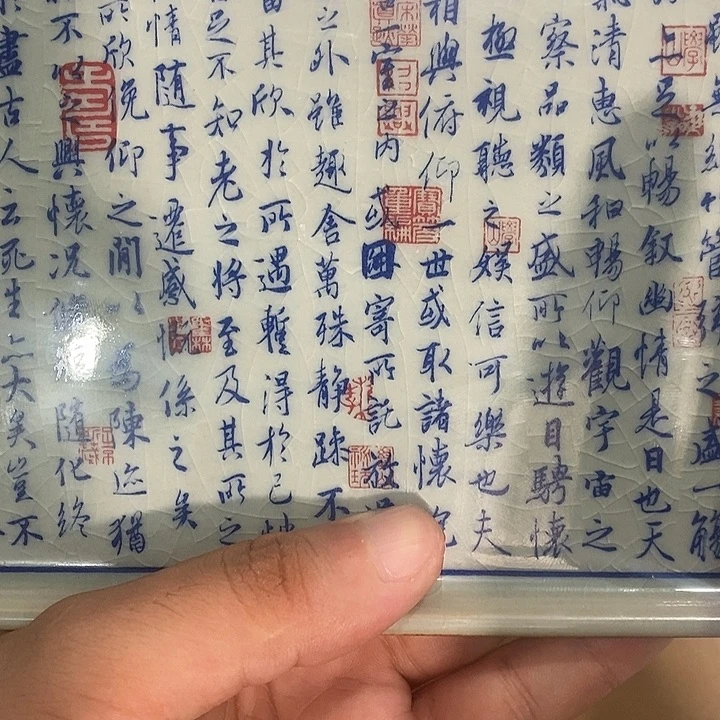 竹管弦之盛一觴
上足以暢叙幽情是日也天
氣清惠風和暢仰觀宇宙之
察品類之盛所以遊目騁懷
極視聽之娛信可樂也夫
相與俯仰一世或取諸懷抱
一室之內或因寄所託放
之外雖趣舍萬殊靜躁不
當其欣於所遇暫得於己快
足不知老之將至及其所之
情隨事遷感慨係之矣
所欣俛仰之間以為陳迹猶
不以之興懷況脩短隨化終
盡古人云死生亦大矣豈不